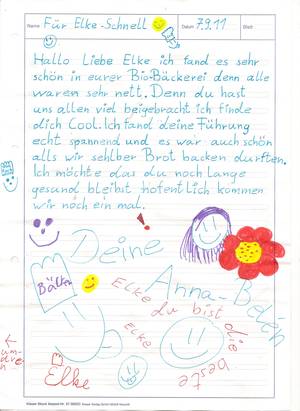 Name Für Elke-Schnell Datum 7.9.11 Blatt
Hallo Liebe Elke ich fand es sehr
schön in eurer Bio-Bäckerei denn alle
waren sehr nett. Denn du hast
uns allen viel beigebracht ich finde
dich Cool. Ich fand deine Führung
echt spannend und es war auch schön
alls wir sehlber Brot backen durften.
Ich möchte das du noch Lange
gesund bleibst hofentlich kommen
wir noch ein mal.
!
Deine
Anna-Belen
Bälten
Elcke du bist die
beste
Elcke
← um-
dreh
n
Elke